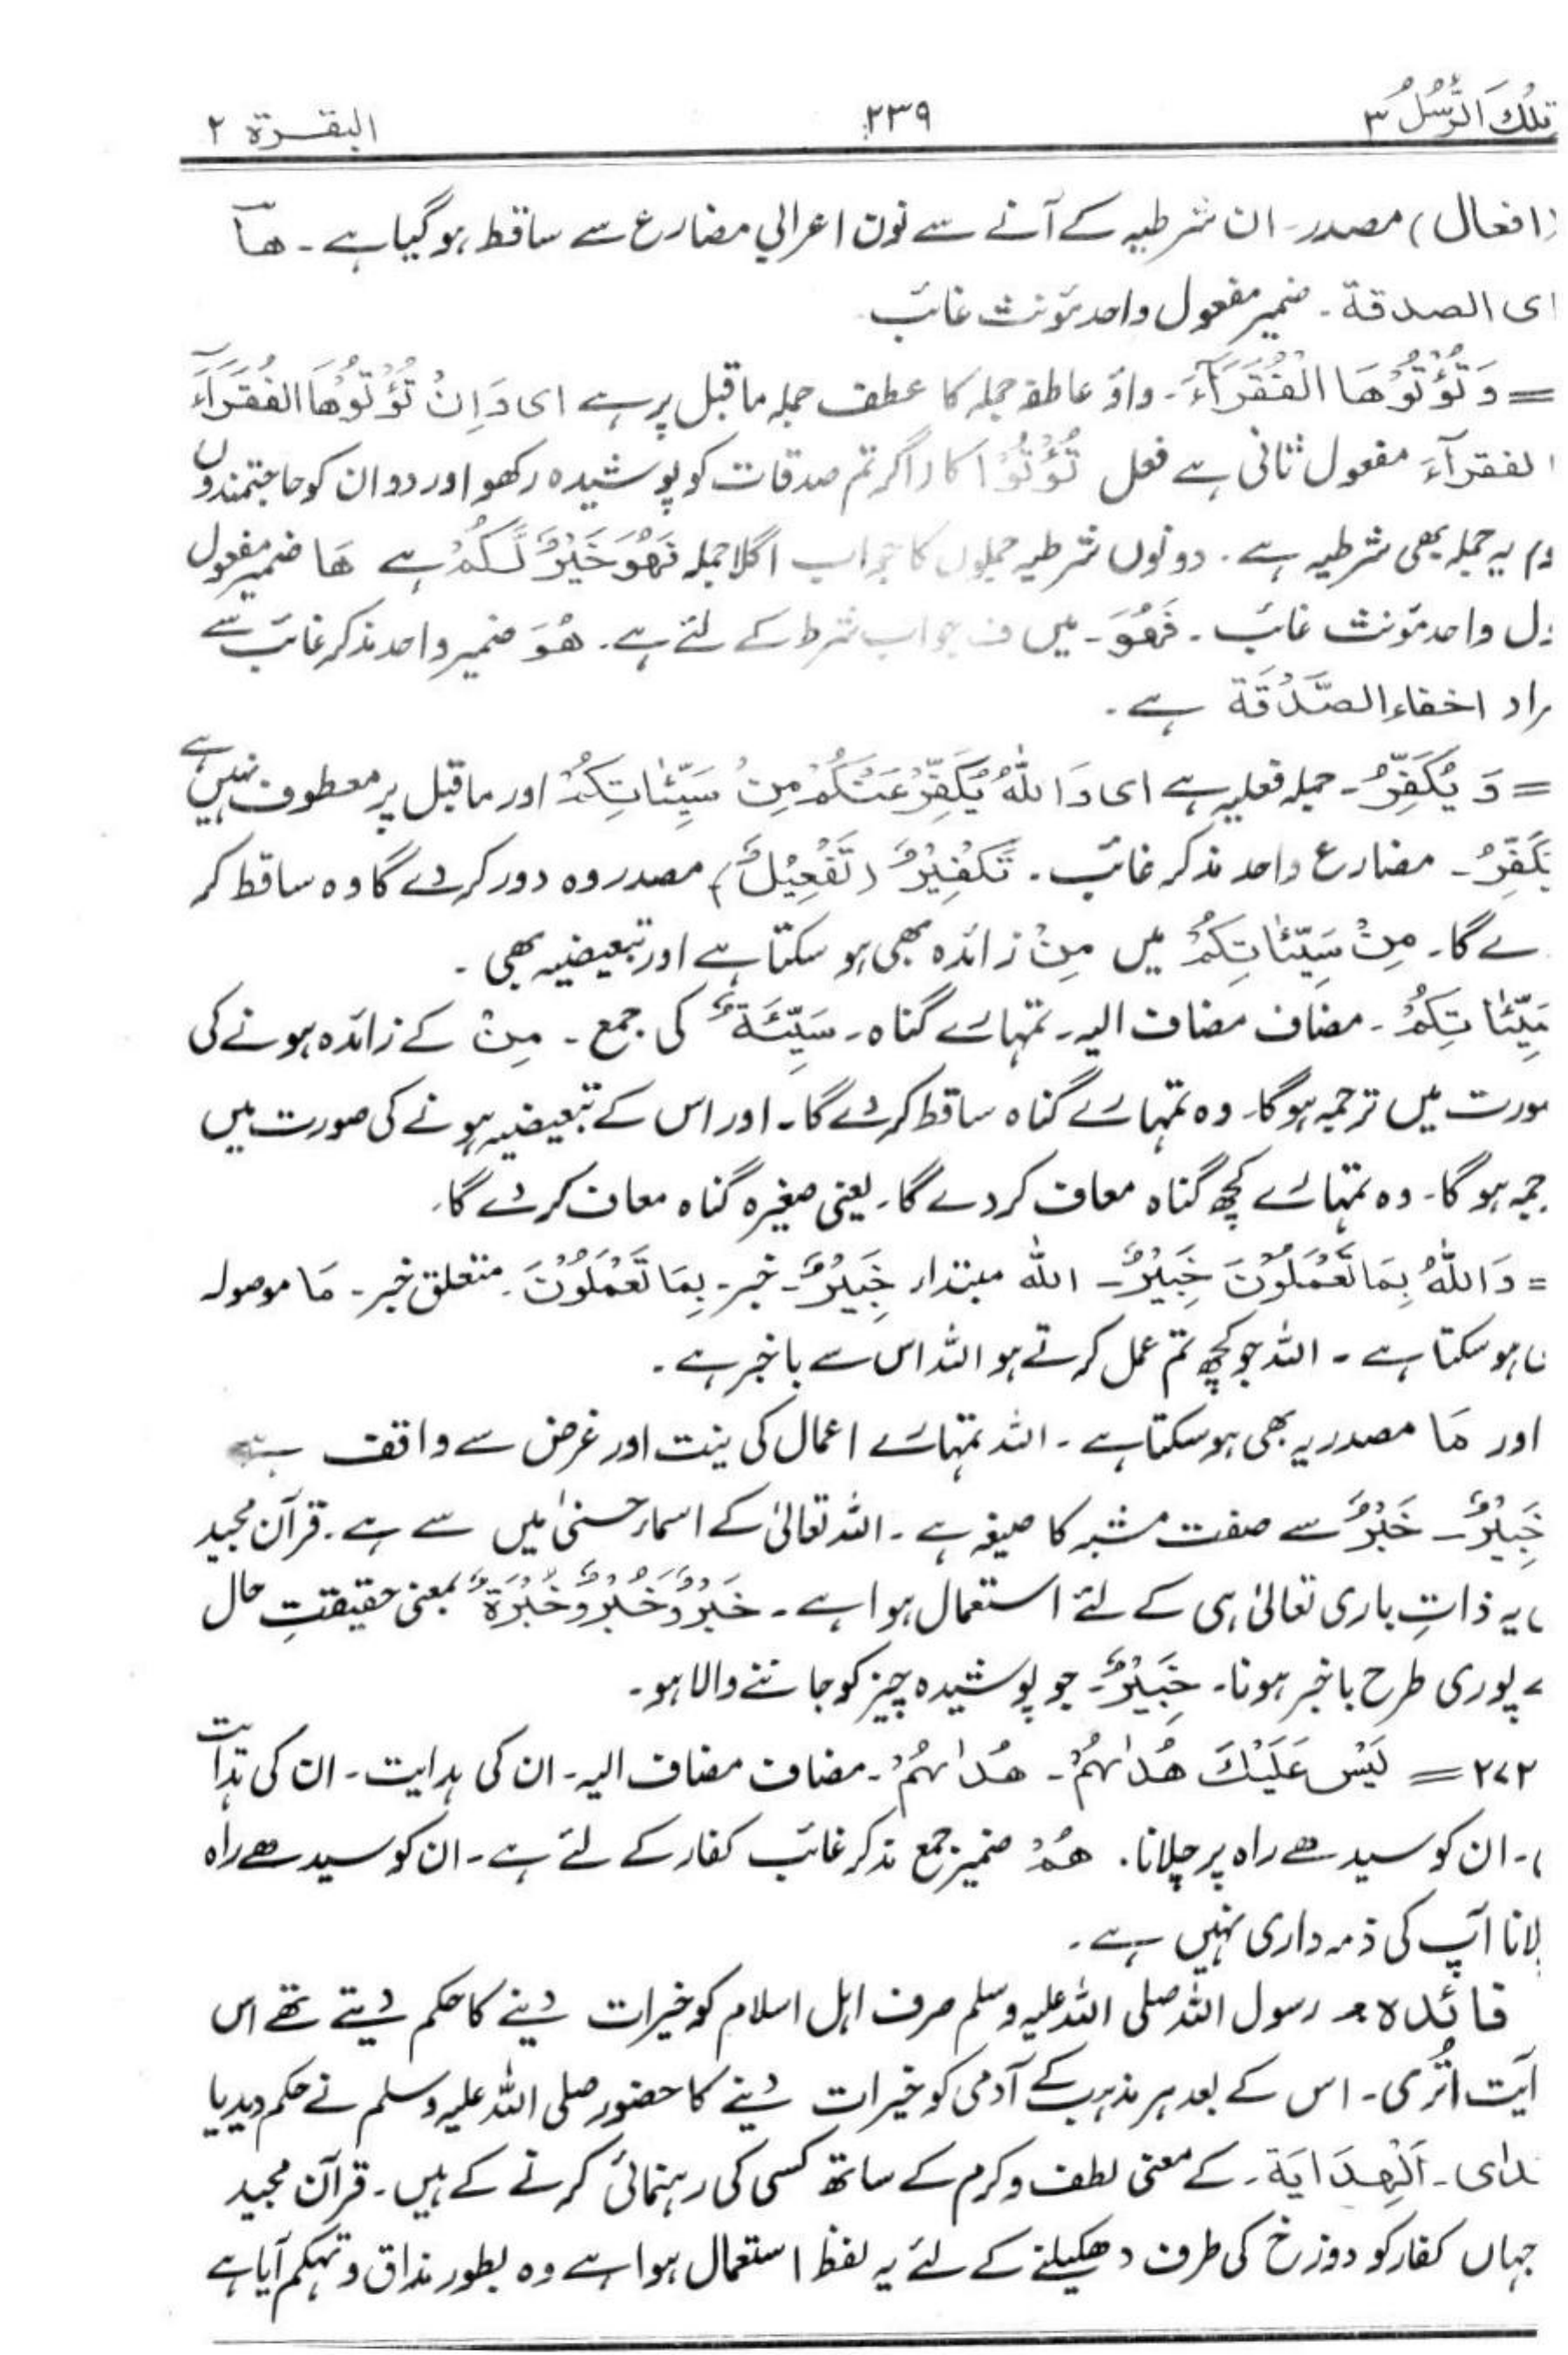 تِلْكَ الرُّسُلُ ۳ ۲۳۹ البقرة ۲
(افعال) مصدر۔ ان شرطیہ کے آنے سے نون اعرابی مضارع سے ساقط ہو گیا ہے۔ ھَا
ای الصدقة۔ ضمیر مفعول واحد مؤنث غائب
= وَ تُؤْتُوْهَا الْفُقَرَآءَ۔ واؤ عاطفہ جملہ کا عطف جملہ ماقبل پر ہے ای وَاِنْ تُؤْتُوْهَا الْفُقَرَآءَ
الفقرآءَ مفعول ثانی ہے فعل تُؤْتُوْا کا (اگر تم صدقات کو پوشیدہ رکھو اور دو ان کو حاجتمندوں
یہ جملہ بھی شرطیہ ہے۔ دونوں شرطیہ جملوں کا جواب اگلا جملہ فَهُوَ خَيْرٌ لَّكُمْ ہے ھَا ضمیر مفعول
واحد مؤنث غائب۔ فَهُوَ۔ میں ف جواب شرط کے لئے ہے۔ ھُوَ ضمیر واحد مذکر غائب سے
راد اخفاء الصَّدَقَة ہے۔
= وَ يُكَفِّرُ۔ جملہ فعلیہ ہے ای وَاللّٰهُ يُكَفِّرُ عَنْكُمْ مِنْ سَيِّئٰاتِكُمْ اور ماقبل پر معطوف نہیں ہے
يُكَفِّرُ۔ مضارع واحد مذکر غائب۔ تَكْفِيْرٌ (تَفْعِيْلٌ) مصدر وہ دور کر دے گا وہ ساقط کر
ے گا۔ مِنْ سَيِّئٰاتِكُمْ میں مِنْ زائدہ بھی ہو سکتا ہے اور تبعیضیہ بھی۔
سَيِّئٰاتِكُمْ۔ مضاف مضاف الیہ۔ تمہارے گناہ۔ سَيِّئَةٌ کی جمع۔ مِنْ کے زائدہ ہونے کی
ورت میں ترجمہ ہوگا۔ وہ تمہارے گناہ ساقط کر دے گا۔ اور اس کے تبعیضیہ ہونے کی صورت میں
جمہ ہو گا۔ وہ تمہارے کچھ گناہ معاف کر دے گا۔ یعنی صغیرہ گناہ معاف کر دے گا۔
= وَاللّٰهُ بِمَا تَعْمَلُوْنَ خَبِيْرٌ۔ اللّٰه مبتدار خَبِيْرٌ۔ خبر۔ بِمَا تَعْمَلُوْنَ۔ متعلق خبر۔ مَا موصولہ
ہو سکتا ہے۔ اللہ جو کچھ تم عمل کرتے ہو اللہ اس سے باخبر ہے۔
اور مَا مصدریہ بھی ہو سکتا ہے۔ اللہ تمہارے اعمال کی نیت اور غرض سے واقف ہے
خَبِيْرٌ۔ خَبْرٌ سے صفت مشبہ کا صیغہ ہے۔ اللہ تعالیٰ کے اسماء حسنیٰ میں سے ہے۔ قرآن مجید
یہ ذاتِ باری تعالیٰ ہی کے لئے استعمال ہوا ہے۔ خَبْرٌ وَّ خُبْرٌ وَ خُبْرَةٌ بمعنی حقیقتِ حال
ے پوری طرح باخبر ہونا۔ خَبِيْرٌ۔ جو پوشیدہ چیز کو جاننے والا ہو۔
۲۷۲ = لَيْسَ عَلَيْكَ هُدٰىهُمْ۔ هُدٰىهُمْ۔ مضاف مضاف الیہ۔ ان کی ہدایت۔ ان کی ہدایت
۔ ان کو سیدھے راہ پر چلانا۔ هُمْ ضمیر جمع مذکر غائب کفار کے لئے ہے۔ ان کو سیدھے راہ
لانا آپ کی ذمہ داری نہیں ہے۔
فائدہ: رسول اللہ صلی اللہ علیہ وسلم صرف اہل اسلام کو خیرات دینے کا حکم دیتے تھے اس
آیت اُتری۔ اس کے بعد ہر مذہب کے آدمی کو خیرات دینے کا حضور صلی اللہ علیہ وسلم نے حکم دیدیا
اَلْهِدَايَة۔ کے معنی لطف و کرم کے ساتھ کسی کی رہنمائی کرنے کے ہیں۔ قرآن مجید
جہاں کفار کو دوزخ کی طرف دھکیلنے کے لئے یہ لفظ استعمال ہوا ہے وہ بطور مذاق و تہکم آیا ہے